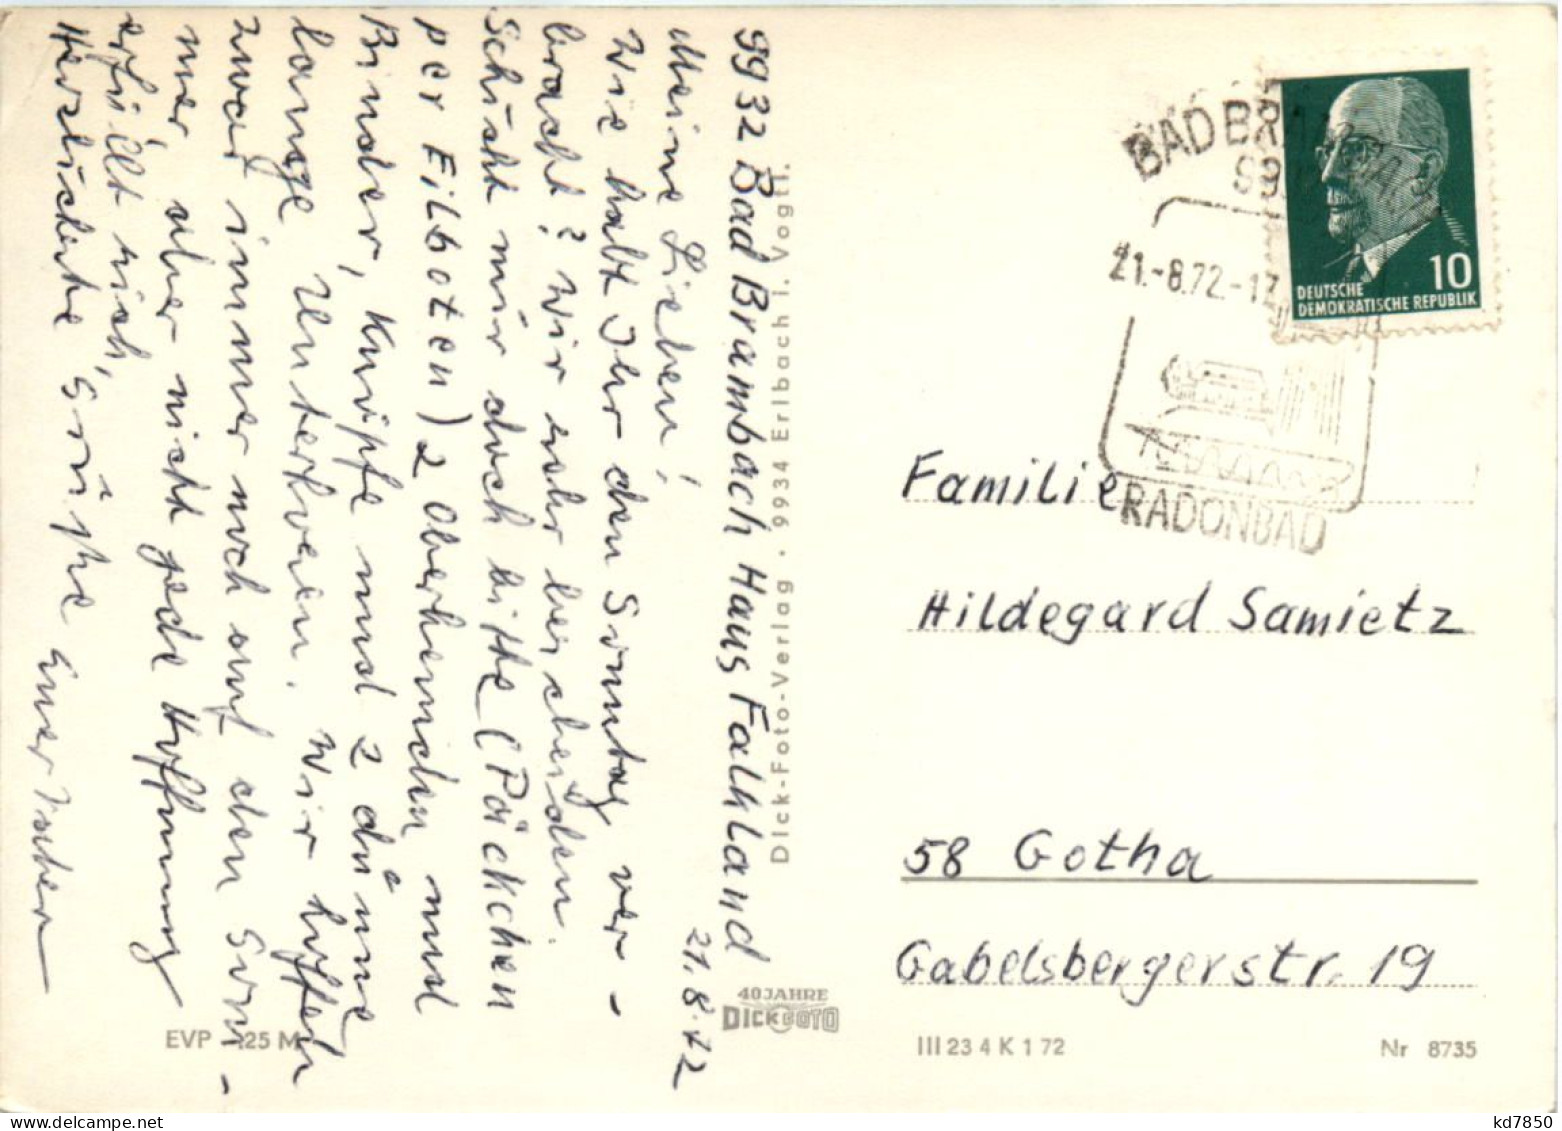 9932 Bad Brambach Haus Falkland
21.8.72
Meine Lieben!
Wie habt Ihr den Sonntag ver-
bracht? Wir sehr bescheiden.
Schickt mir doch bitte (Päckchen
per Eilboten) 2 Oberhemden und
Binder, Knöpfe und 2 dünne
lange Unterhosen. Wir hoffen
zwar immer noch auf den Som-
mer, aber nicht jede Hoffnung
erfüllt sich.
Herzlichste Grüße Euer
Dick-Foto-Verlag · 9934 Erlbach i. Vogtl.
40 JAHRE
DICK FOTO
EVP -,25 M
BAD BRAMBACH
21.-8.72.-17
RADONBAD
10
DEUTSCHE
DEMOKRATISCHE REPUBLIK
Familie
Hildegard Samietz
58 Gotha
Gabelsbergerstr. 19
III 23 4 K 1 72
Nr 8735
kd7850